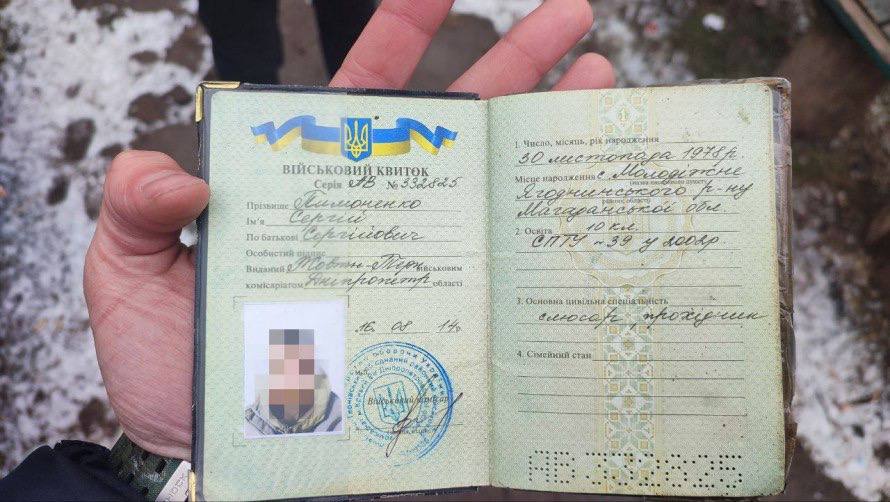 ВІЙСЬКОВИЙ КВИТОК
Серія АВ № 332825
Прізвище Лимоненко
Ім'я Сергій
По батькові Сергійович
Особистий підпис
Виданий Жовтн-Терн військовим
комісаріатом Дніпропетр області
16 08 14
Військовий комісар
1
1. Число, місяць, рік народження
30 листопада 1978р.
Місце народження с. Молодіжне
Ягоднинського р-ну
Магаданської обл.
2. Освіта 10 кл.
СПТУ-39 у 2002р
3. Основна цивільна спеціальність
слюсар, прохідник
4. Сімейний стан
АВ 332825